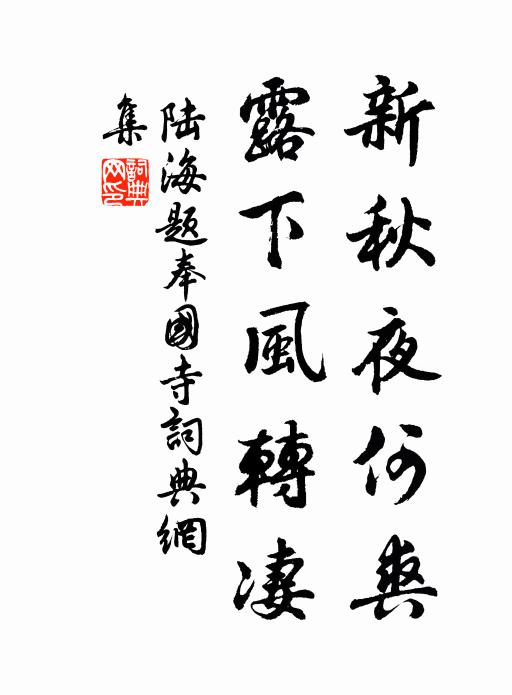 新秋夜何爽
露下風轉淒
陸海題奉國寺詞典網
集
詞典
网印